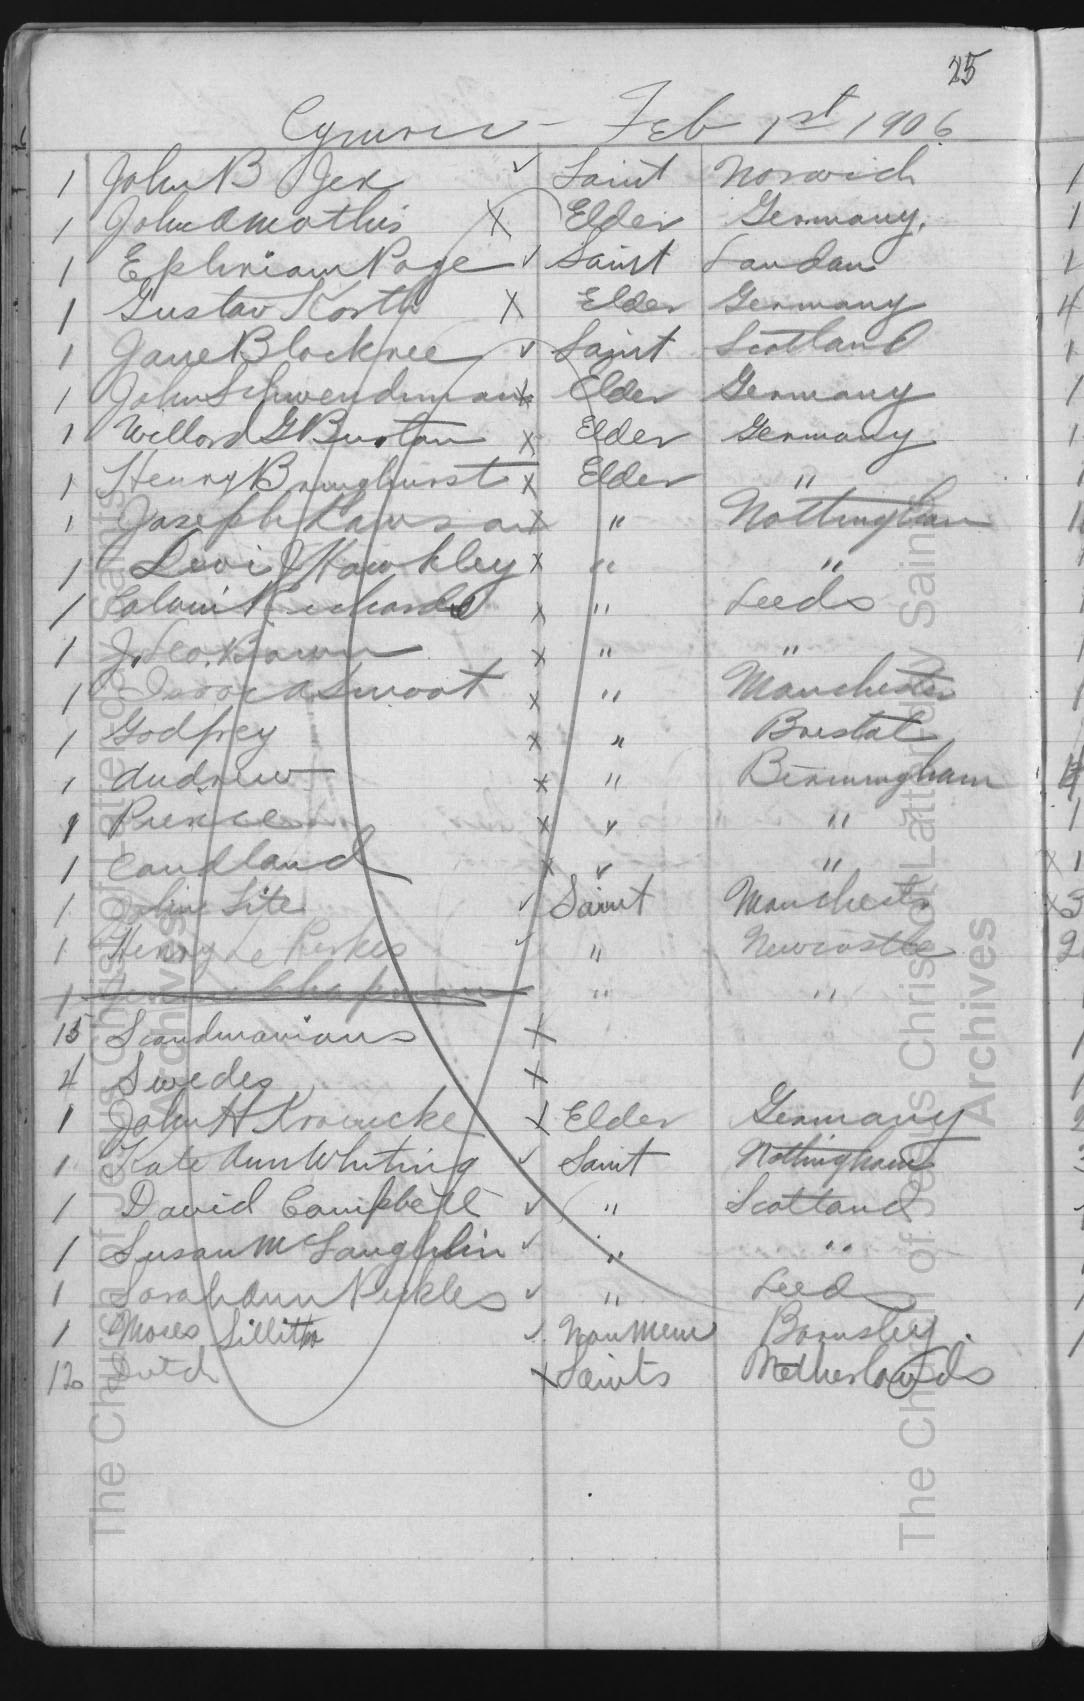 25
Cymric - Feb 1st 1906
1 John B Jex ✓ Saint Norwich
1 John A Mathis X Elder Germany.
1 Ephriam Page ✓ Saint London
1 Gustav Korth X Elder Germany
1 Jane Blocknee ✓ Saint Scotland
1 John Schwendiman x Elder Germany
1 Willord G Burton x Elder Germany
1 Henry Bringhurst x Elder "
1 Joseph Rawson x " Nottingham
1 Levi J Hawkley x " "
1 Calvin Richards x " Leeds
1 J. Leo. Brown x " "
1 Isaac A Smoot x " Manchester
1 Godfrey x " Bristol
1 Andrew x " Birmingham
1 Pierce x " "
1 Candland x " "
1 Lite ✓ Saint Manchester
1 Henry Le Perkes ✓ " Newcastle
1 Chapman " "
15 Scandinavians x
4 Swedes x
1 John H Kroencke x Elder Germany
1 Kate Ann Whiting ✓ Saint Nottingham
1 David Campbell ✓ " Scotland
1 Susan McLaughlin ✓ " "
1 Sarah Ann Pickles ✓ " Leeds
1 Moses Sillito ✓ Non Mem Barnsley.
12 Dutch x Saints Netherlands
The Church of Jesus Christ of Latter-day Saints
Archives
The Church of Jesus Christ of Latter-day Saints
Archives